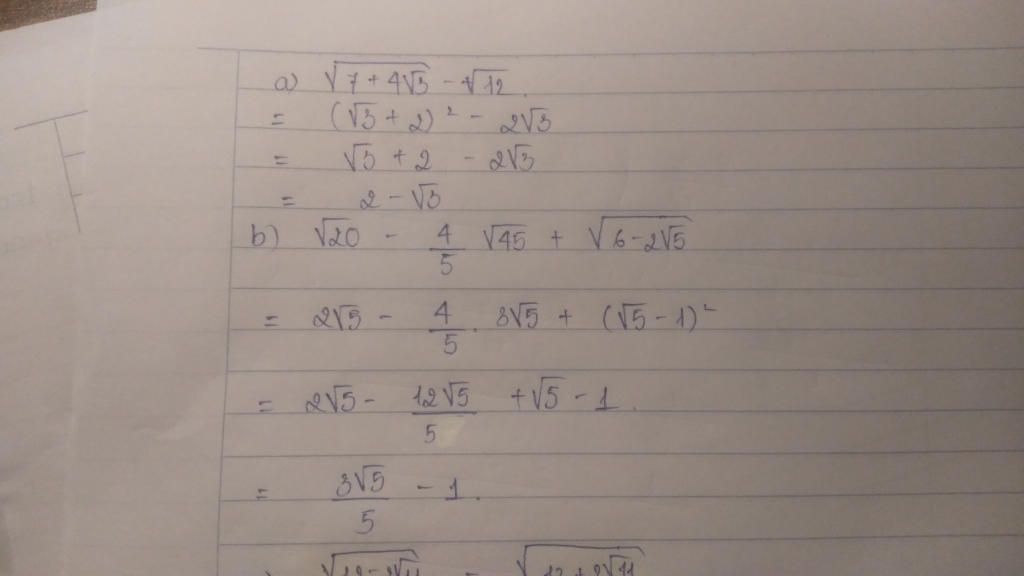 a) √(7 + 4√3) - √12.
= (√3 + 2)² - 2√3
= √3 + 2 - 2√3
= 2 - √3
b) √20 - 4/5 √45 + √(6 - 2√5)
= 2√5 - 4/5 . 3√5 + (√5 - 1)²
= 2√5 - 12√5/5 + √5 - 1.
= 3√5/5 - 1.